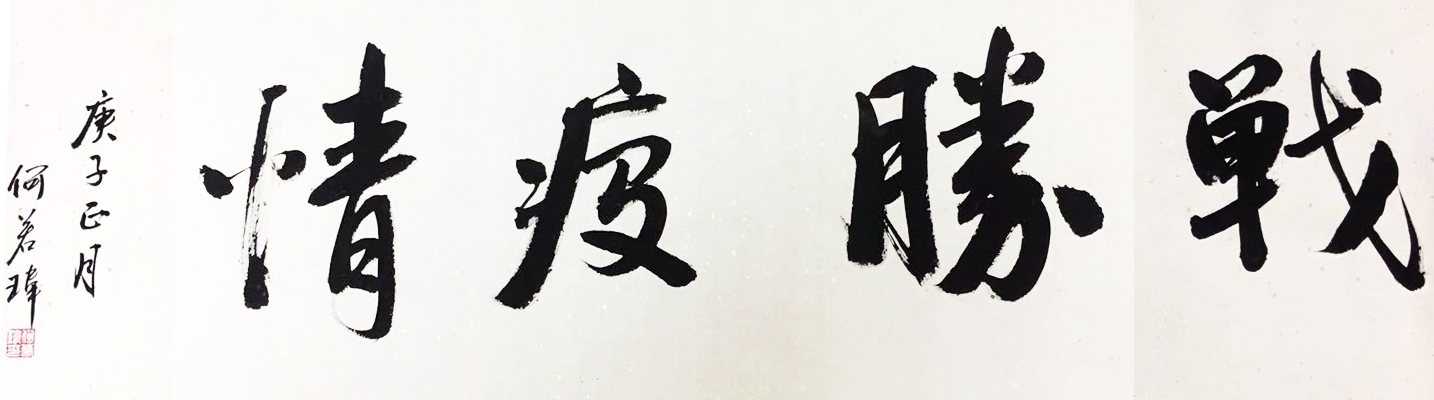 戦勝疫情
庚子正月
何若瑋